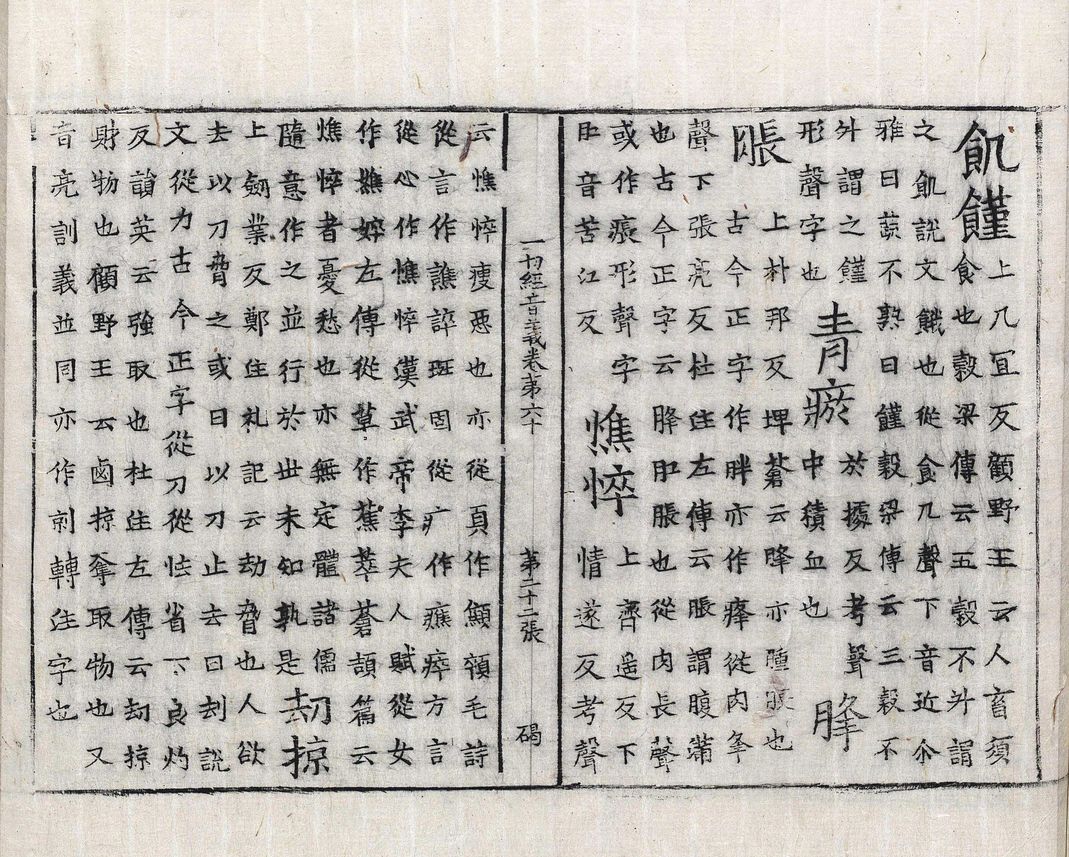 飢饉上几冝反顧野王云人畜須
食也穀梁傳云五穀不升謂
之飢說文餓也從食几聲下音近尒
雅曰蔬不熟曰饉穀梁傳云三穀不
升謂之饉青瘀於據反考聲
形聲字也中積血也胮
脹上朴邦反埤蒼云胮亦腫脹也
古今正字作胖亦作瘴從肉夆
聲下張亮反杜注左傳云脹謂腹滿
也古今正字云胮肛脹也從肉長聲
或作痮形聲字憔悴上齊遥反下
肛音苦江反情遂反考聲
一切經音義卷第六十 第二十二張 碣
云憔悴瘦惡也亦從頁作顦顇毛詩
從言作譙誶班固從疒作癄瘁方言
從心作憔悴漢武帝李夫人賦從女
作嫶婞左傳從草作蕉萃蒼頡篇云
憔悴者憂愁也亦無定體諸儒
隨意作之並行於世未知孰是刼掠
上劒業反鄭注礼記云劫脅也人欲
去以刀脅之或曰以刀止去曰刦說
文從力古今正字從刀從怯省下良灼
反韻英云強取也杜注左傳云刧掠
財物也顧野王云鹵掠奪取物也又
音亮訓義並同亦作剠轉注字也